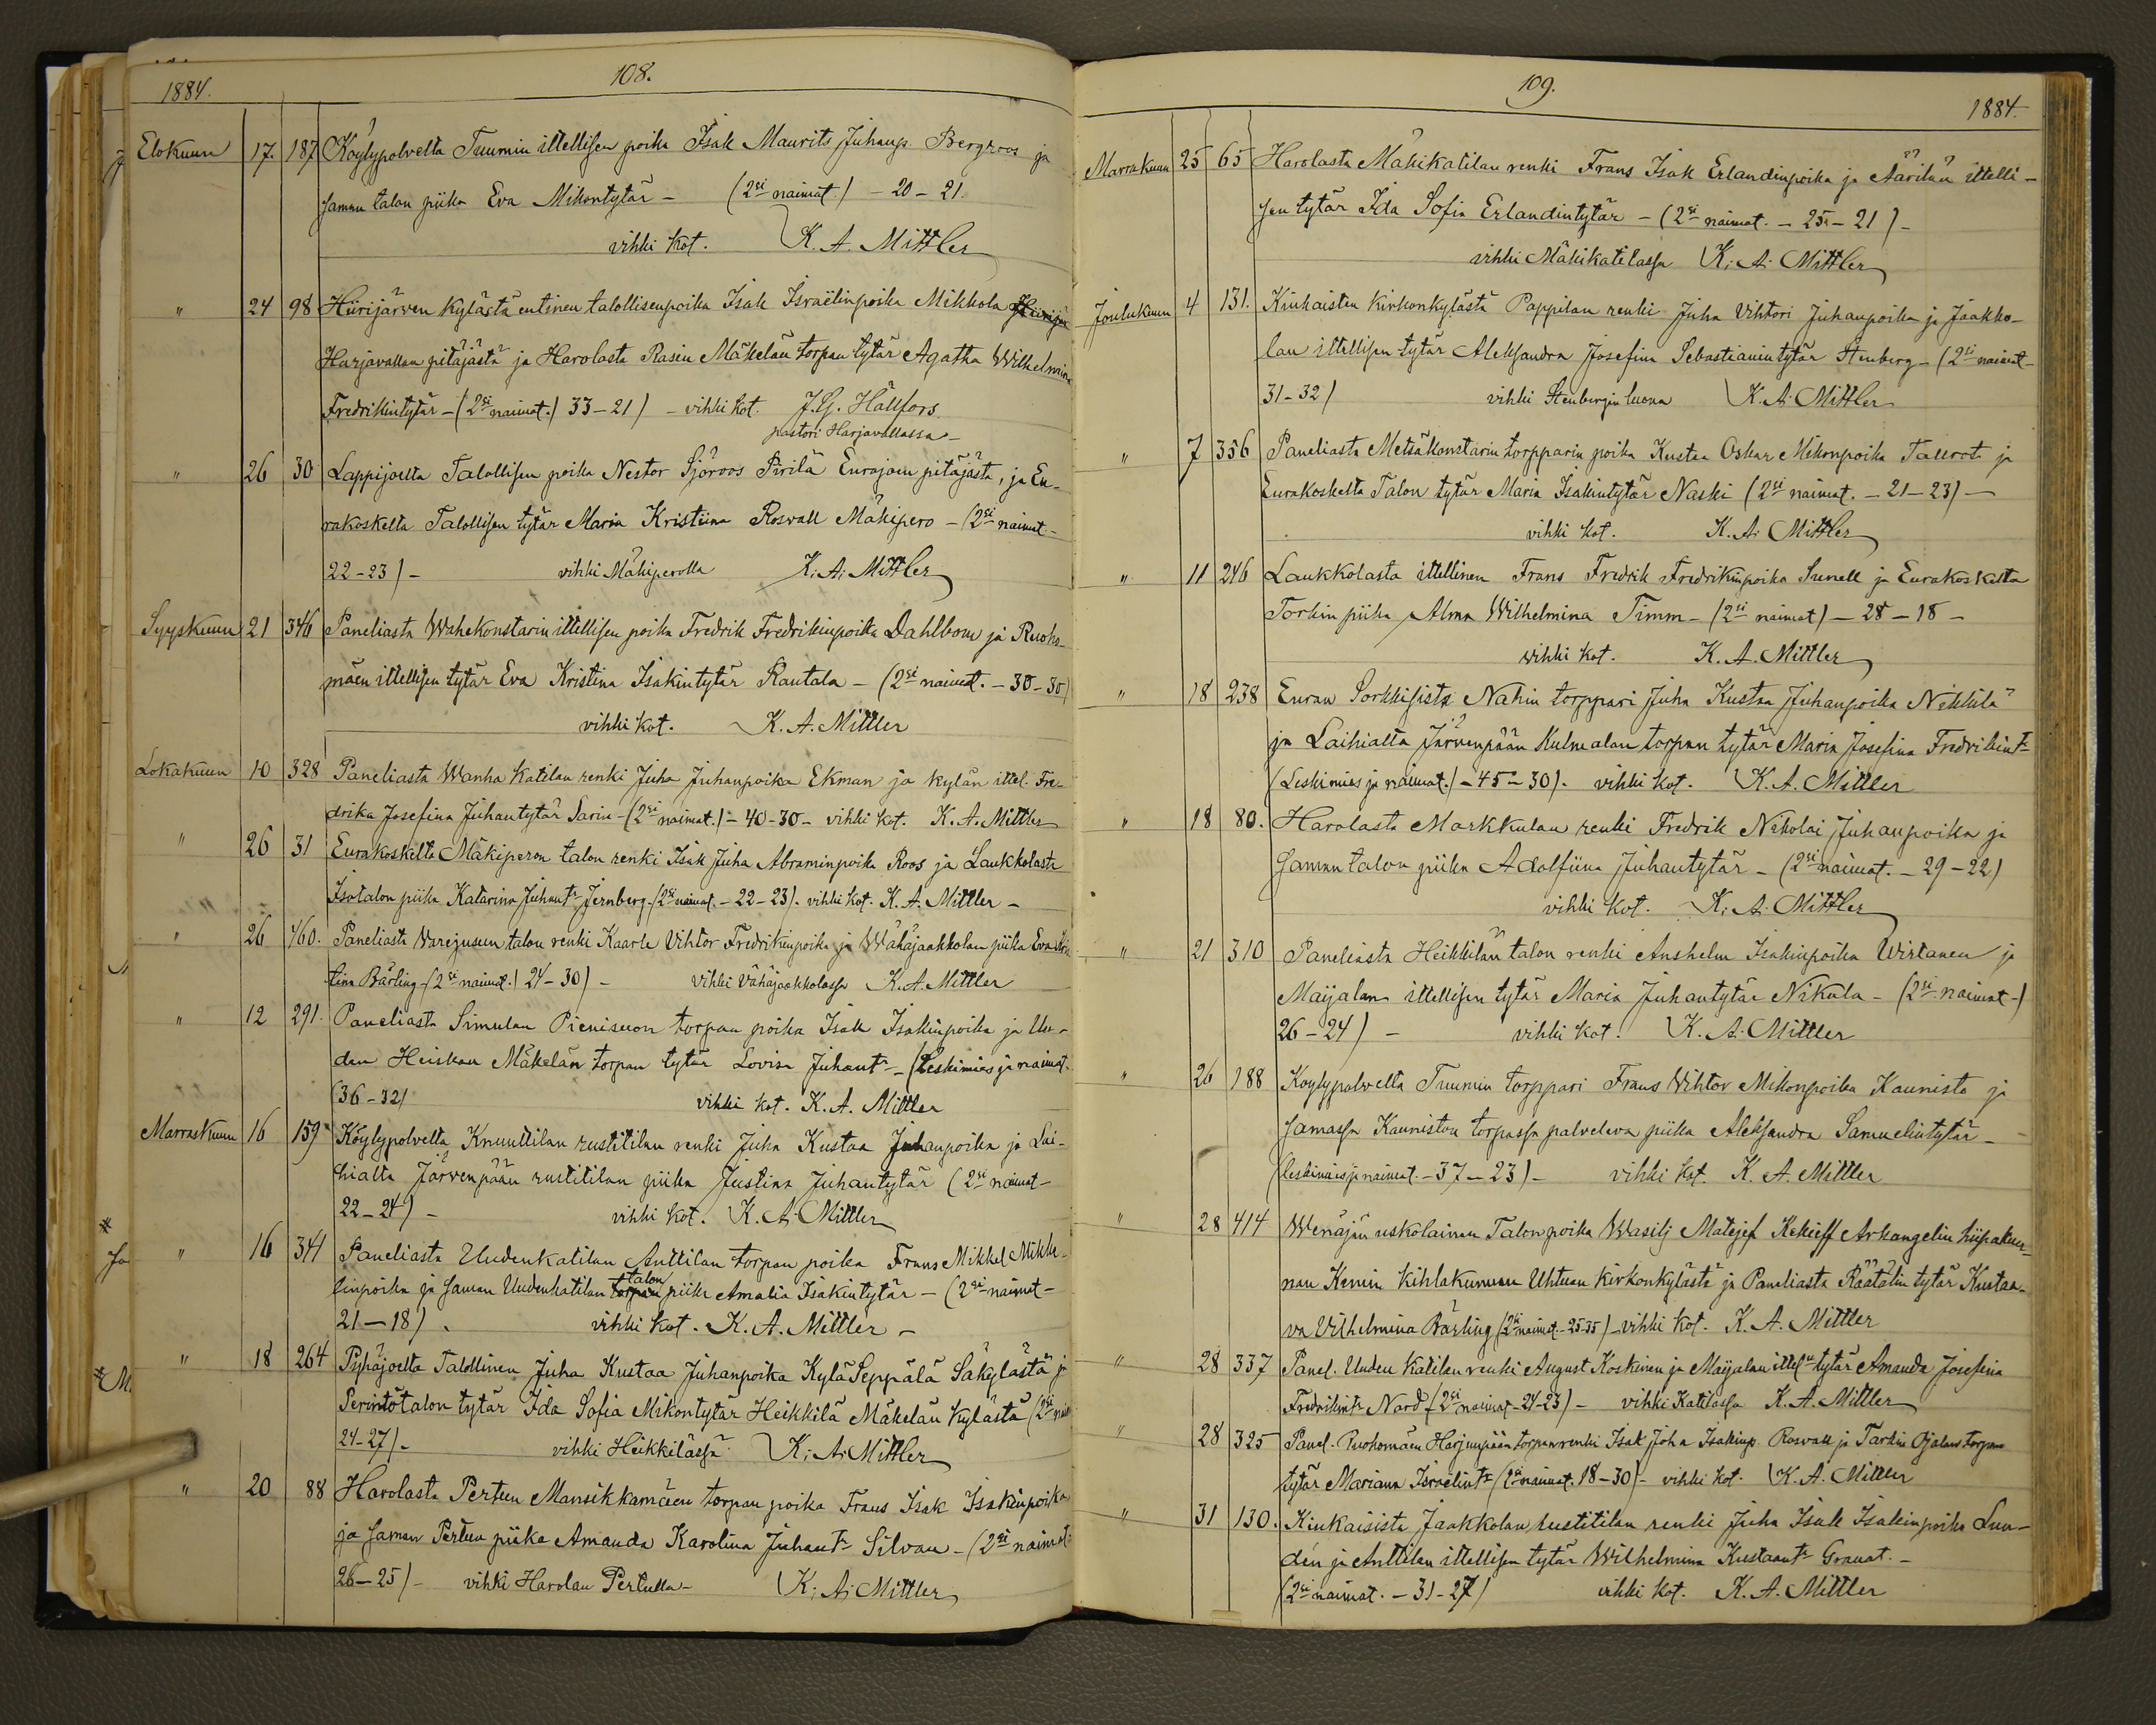 108.
1884.
Elokuun 17. 187 Köylypolvelta Tuumin ittellisen poika Isak Maurits Juhanp. Bergroos ja
saman talon piika Eva Mikontytär - (2si naimat.) - 20 - 21.
vihki kot. K. A. Mittler
" 24 98 Hiirijärven kylästä entinen talollisenpoika Isak Israëlinpoika Mikkola
Harjavallan pitäjästä ja Harolasta Rasin Mäkelän torpan tytär Agatha Wilhelmina
Fredrikintytär - (2si naimat.) 33 - 21) - vihki kot. J. G. Hällfors
pastori Harjavallassa -
" 26 30 Lappijoelta Talollisen poika Nestor Sjöroos Pirilä Eurajoen pitäjästä, ja Eu-
rakoskelta Talollisen tytär Maria Kristiina Rosvall Mäkipero - (2si naimat. -
22 - 23) - vihki Mäkiperolla K. A. Mittler
Syyskuun 21 346 Paneliasta Wahekonstarin ittellisen poika Fredrik Fredrikinpoika Dahlbom ja Ruoho-
mäen ittellisen tytär Eva Kristina Isakintytär Rautala - (2si naimat. - 30 - 30)
vihki kot. K. A. Mittler
Lokakuun 10 328 Paneliasta Wanha Katilan renki Juha Juhanpoika Ekman ja kylän ittel. Fre-
drika Josefina Juhantytär Sarin - (2si naimat.) - 40 - 30 - vihki kot. K. A. Mittler
" 26 31 Eurakoskelta Mäkiperon talon renki Isak Juha Abraminpoika Roos ja Laukkolasta
Isotalon piika Katarina Juhantr Jernberg - (2si naimat. - 22 - 23). vihki kot. K. A. Mittler -
" 26 460. Paneliasta Varejusuen talon renki Kaarle Vihtor Fredrikinpoika ja Wähäjaakkolan piika Eva Kris
tina Bärling - (2si naimat.) 24 - 30) - vihki Vähäjaakkolassa K. A. Mittler
" 12 291. Paneliasta Simulan Pieniseuon torpan poika Isak Isakinpoika ja Uu-
den Heiskan Mäkelän torpan tytär Lovisa Juhantr - (Leskimies ja naimat.
(36 - 32) vihki kot. K. A. Mittler
Marraskuun 16 159 Köylypolvelta Knuuttilan rustitilan renki Juha Kustaa Juhanpoika ja Lai-
hialta Järvenpään rustitilan piika Justina Juhantytär (2si naimat -
22 - 24) - vihki kot. K. A. Mittler
" 16 341 Paneliasta Uudenkatilan Anttilan torpan poika Frans Mikkel Mikke-
linpoika ja saman Uudenkatilan talon piika Amalia Isakintytär - (2si naimat -
21 - 18). vihki kot. K. A. Mittler -
" 18 264 Pyhäjoelta Talollinen Juha Kustaa Juhanpoika Kylä Seppälä Säkylästä ja
Perintötalon tytär Ida Sofia Mikontytär Heikkilä Mäkelän kylästä (2si
24 - 27). - vihki Heikkilässä K. A. Mittler
" 20 88 Harolasta Perteen Mansikkamäen torpan poika Frans Isak Isakinpoika
ja saman Pertun piika Amanda Karolina Juhantr Silvan - (2si naimat.
26 - 25) - vihki Harolan Pertulla - K. A. Mittler
109.
1884.
Marrakuun 25 65 Harolasta Mäkikatilan renki Frans Isak Erlandinpoika ja Äärilän ittelli-
sen tytär Ida Sofia Erlandintytär - (2si naimat. - 25 - 21) -
vihki Mäkikatilassa K. A. Mittler
Joulukuun 4 131. Kiukaisten kirkonkylästä Pappilan renki Juha Vihtori Juhanpoika ja Jaakko-
lan ittellisen tytär Aleksandra Josefina Sebastianintytär Stenberg - (2si naimat -
31 - 32) vihki Stenbergin luona K. A. Mittler
" 7 356 Paneliasta Metsäkonstarin torpparin poika Kustaa Oskar Mikonpoika Tallroot ja
Eurakoskelta Talon tytär Maria Isakintytär Naski (2si naimat. - 21 - 23) -
vihki kot. K. A. Mittler
" 11 246 Laukkolasta ittellinen Frans Fredrik Fredrikinpoika Sunell ja Eurakoskelta
Torkin piika Alma Wilhelmina Timm - (2si naimat) - 28 - 18 -
vihki kot. K. A. Mittler
" 18 238 Euran Sorkkisista Nahin torppari Juha Kustaa Juhanpoika Nikkilä
ja Laihialta Järvenpään Kulmalan torpan tytär Maria Josefina Fredrikintr
(Leskimies ja naimat.) - 45 - 30). vihki kot. K. A. Mittler
" 18 80. Harolasta Markkulan renki Fredrik Nikolai Juhanpoika ja
saman talon piika Adolfiina Juhantytär - (2si naimat. - 29 - 22)
vihki kot. K. A. Mittler
" 21 310 Paneliasta Heikkilän talon renki Anshelm Isakinpoika Wirtanen ja
Maijalan ittellisen tytär Maria Juhantytär Nikula - (2si naimat -)
26 - 24) - vihki kot. K. A. Mittler
" 26 188 Köylypolvelta Tuumin torppari Frans Vihtor Mikonpoika Kaunisto ja
samassa Kauniston torpassa palveleva piika Aleksandra Samuelintytär -
(leskimies ja naimat. - 37 - 23) - vihki kot. K. A. Mittler
" 28 414 Wenäjän uskolainen Talonpoika Wasilj Matejef Kekieff Arkangelin hiipakun-
nan Kemin kihlakunnan Uhtuan kirkonkylästä ja Paneliasta Räätälin tytär Kustaa-
va Vilhelmina Bärling (2si naimat. - 25 - 35) - vihki kot. K. A. Mittler
" 28 337 Panel. Uuden Katilan renki August Koskinen ja Maijalan ittelsn tytär Amanda Josefina
Fredrikintr Nord - (2si naimat - 24 - 23) - vihki Katilassa K. A. Mittler
" 28 325 Panel. Ruohomäen Harjunpään torpan renki Isak Joha Isakinp. Rosvall ja Tarkin Ojalan torpan
tytär Mariana Israëlintr (2si naimat. 18 - 30) - vihki kot. K. A. Mittler
" 31 130. Kiukaisista Jaakkolan rustitilan renki Juha Isak Isakinpoika Lun-
dén ja Anttilan ittellisen tytär Wilhelmina Kustaantr Granat. -
(2si naimat. - 31 - 27) vihki kot. K. A. Mittler